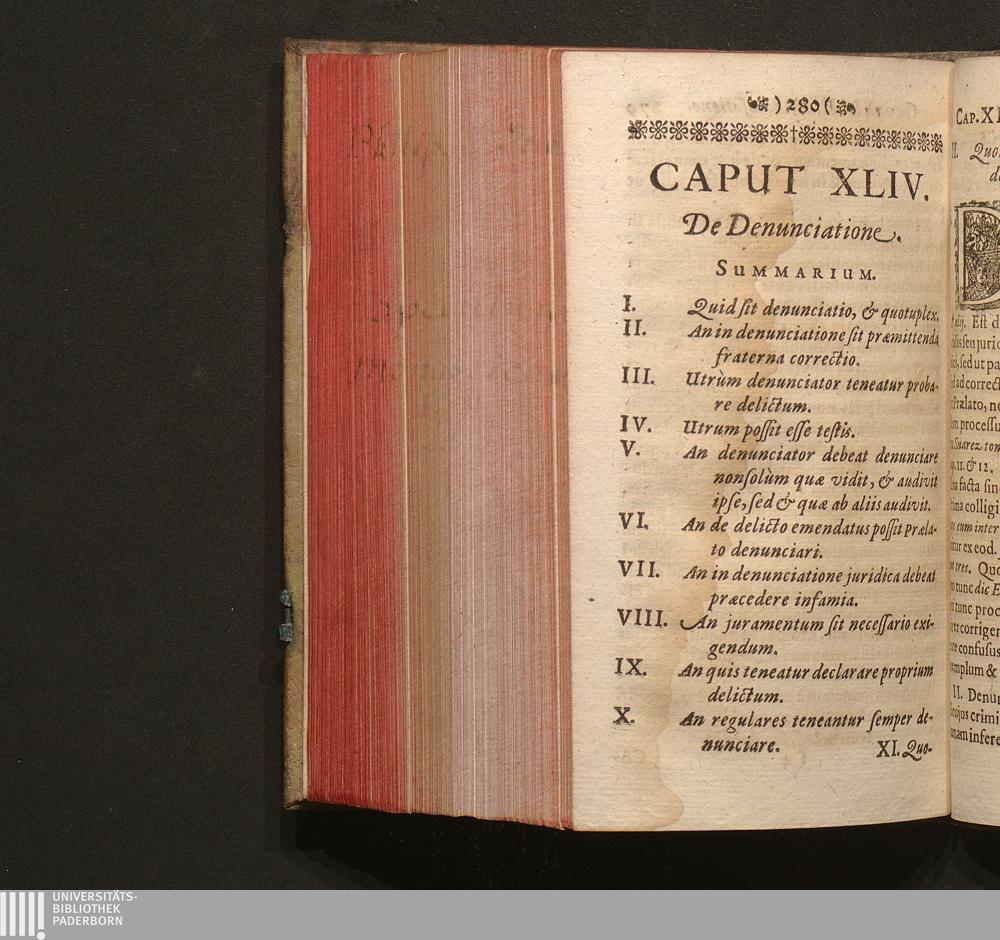 )280(
CAPUT XLIV.
De Denunciatione.
SUMMARIUM.
I. Quid ſit denunciatio, & quotuplex.
II. An in denunciatione ſit præmittenda
fraterna correctio.
III. Utrùm denunciator teneatur proba-
re delictum.
IV. Utrum poſſit eſſe teſtis.
V. An denunciator debeat denunciare
non ſolùm quæ vidit, & audivit
ipſe, ſed & quæ ab aliis audivit.
VI. An de delicto emendatus poſſit præla-
to denunciari.
VII. An in denunciatione juridica debeat
præcedere infamia.
VIII. An juramentum ſit neceſſario exi-
gendum.
IX. An quis teneatur declarare proprium
delictum.
X. An regulares teneantur ſemper de-
nunciare.
XI. Quo-
CAP. XL
II. Quo
alij. Eſt d
ſed ut pa
ad correct
Prælato, no
proceſſu
Suarez tom
11. & 12.
facta ſin
colligi
eum inter
ex eod.
tres. Quo
tunc dic E
tunc proc
corriger
confuſus
templum &
II. Denun
crimi
infere
UNIVERSITÄTS-
BIBLIOTHEK
PADERBORN